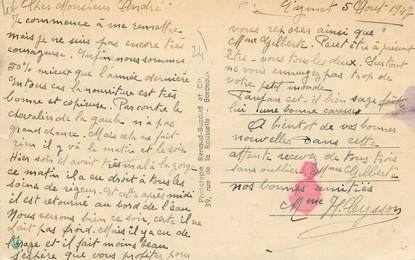 Cher Monsieur André
Je commence à me remettre
mais je ne suis pas encore très
courageuse. Enfin nous sommes
50% mieux que l'année dernière
En tous cas la nourriture est très
bonne et copieuse. Par contre le
chevalier de la gaule n'a pas
grand chance. Mais cela ne fait
rien il y va le matin et le soir
Hier soir il avait très mal à la gorge
ce matin il a eu droit à tous les
soins de rigueur. Et cette après midi
il est retourné au bord de l'eau
Nous verrons bien ce soir, certes il ne
fait pas froid. Mais il y a eu de
l'orage et il fait moins beau
J'espère que vous profitez pour
Eymet 5 Août
vous reposer ainsi que
Mme Gilbert. Peut être à présent
êtes-vous tous les deux. Surtout
ne vous ennuyez pas trop de
votre petit monde
est-il bien sage
lui une bonne caresse
A bientôt de vos bonnes
nouvelles dans cette
attente recevez de tous trois
sans oublier Mme Gilbert
nos bonnes amitiés
Mme H.
39, rue de la Rousselle - Bordeaux